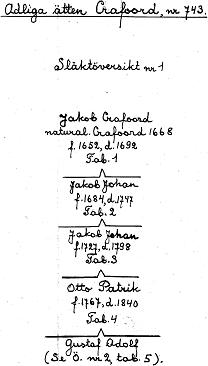 Adliga ätten Crafoord, nr 743.
Släktöversikt nr 1
Jakob Crafoord
natural. Crafoord 1668
f. 1652, d. 1692
Tab. 1
Jakob Johan
f. 1684, d. 1747
Tab. 2
Jakob Johan
f. 1727, d. 1798
Tab. 3
Otto Patrik
f. 1767, d. 1840
Tab. 4
Gustaf Adolf
(Se Ö. nr 2, tab. 5).